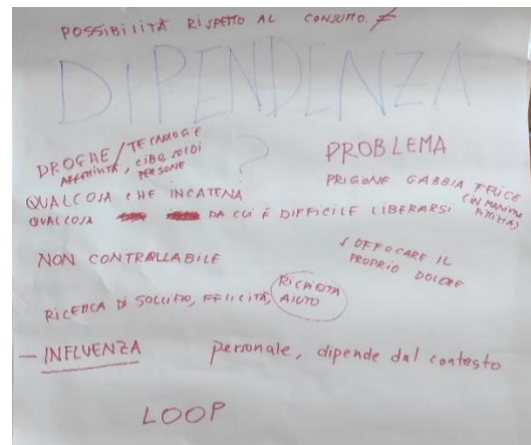 POSSIBILITÀ RISPETTO AL CONSUMO. ≠
DIPENDENZA
?
DROGHE / TECNOLOGIE
AFFETTIVITÀ, CIBO, SOLDI
PERSONE
PROBLEMA
PRIGIONE GABBIA FELICE
(IN MANIERA FITTIZIA)
QUALCOSA CHE INCATENA
QUALCOSA DA CUI È DIFFICILE LIBERARSI
NON CONTRALLABILE
SOFFOCARE IL
PROPRIO DOLORE
RICERCA DI SOLLIEVO, FELICITÀ, RICHIESTA
AIUTO
— INFLUENZA personale, dipende dal contesto
LOOP